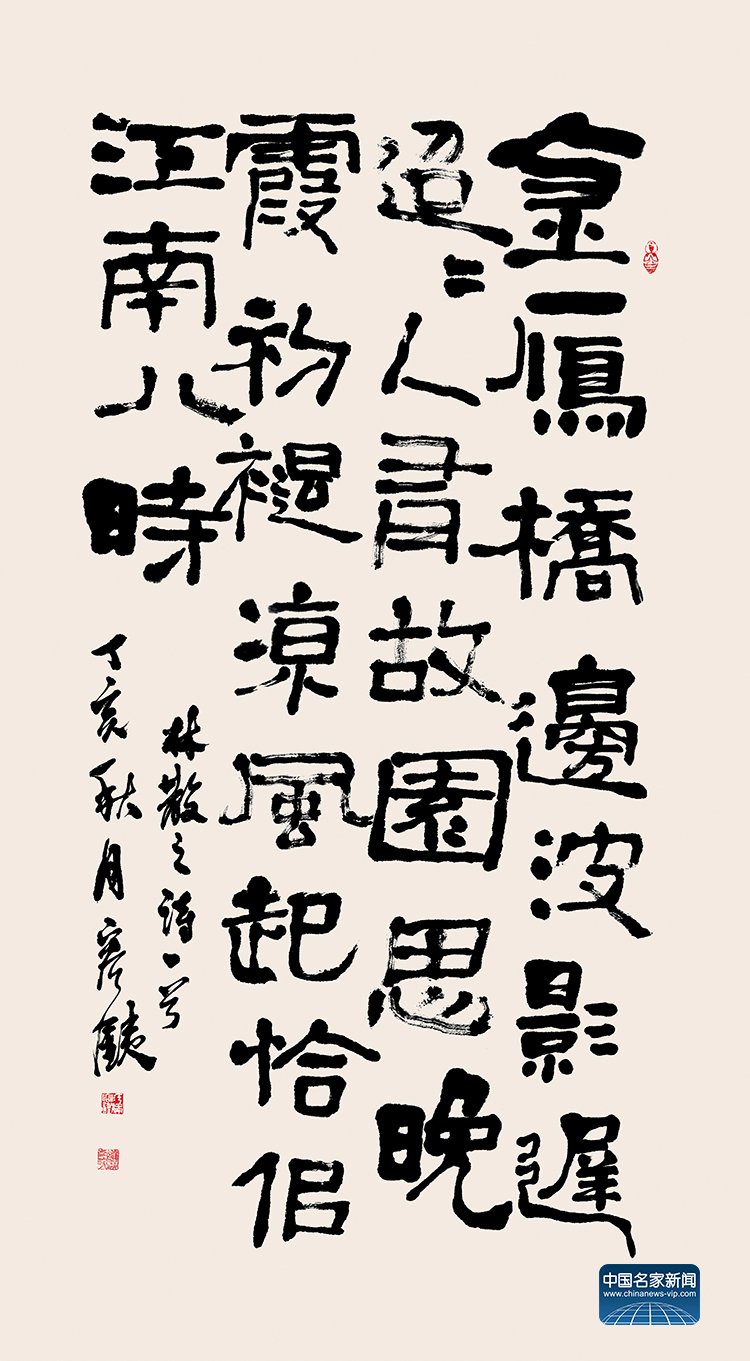 金鴈橋邊波影遲
迢〻人有故園思晚
霞初褪涼風起恰佀
江南八時
林散之詩一首
丁亥秋月
中国名家新闻
www.chinanews-vip.com